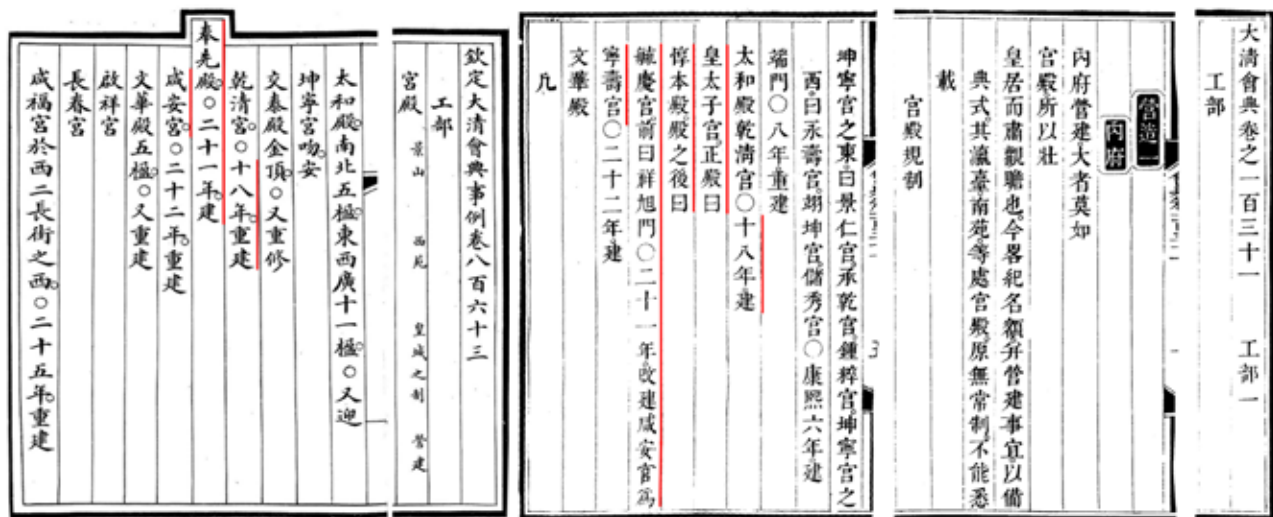 大清會典卷之一百三十一　工部一
工部
營造一
內府
內府營建大者莫如
宮殿所以壯
皇居而肅觀瞻也。今畧紀名額。幷營建事宜。以備
典式。其瀛臺南苑。等處宮殿。原無常制。不能悉
載
宮殿規制
坤寧宮之東。曰景仁宮。承乾宮。鍾粹宮。坤寧宮之
西。曰永壽宮。翊坤宮。儲秀宮。○康熙六年。建
端門○八年。重建
太和殿乾清宮○十八年。建
皇太子宮。正殿曰
惇本殿。殿之後曰
毓慶宮。前曰祥旭門○二十一年。改建咸安宮爲
寧壽宮○二十二年。建
文華殿
凡
欽定大清會典事例卷八百六十三
工部
宮殿　景山　西苑　皇城之制　營建
太和殿。南北五楹。東西廣十一楹。○又迎
坤寧宮吻。安
交泰殿金頂。○又重修
乾清宮。○十八年。重建
奉先殿。○二十一年。建
咸安宮。○二十二年。重建
文華殿五楹。○又重建
啟祥宮
長春宮
咸福宮於西二長街之西。○二十五年。重建